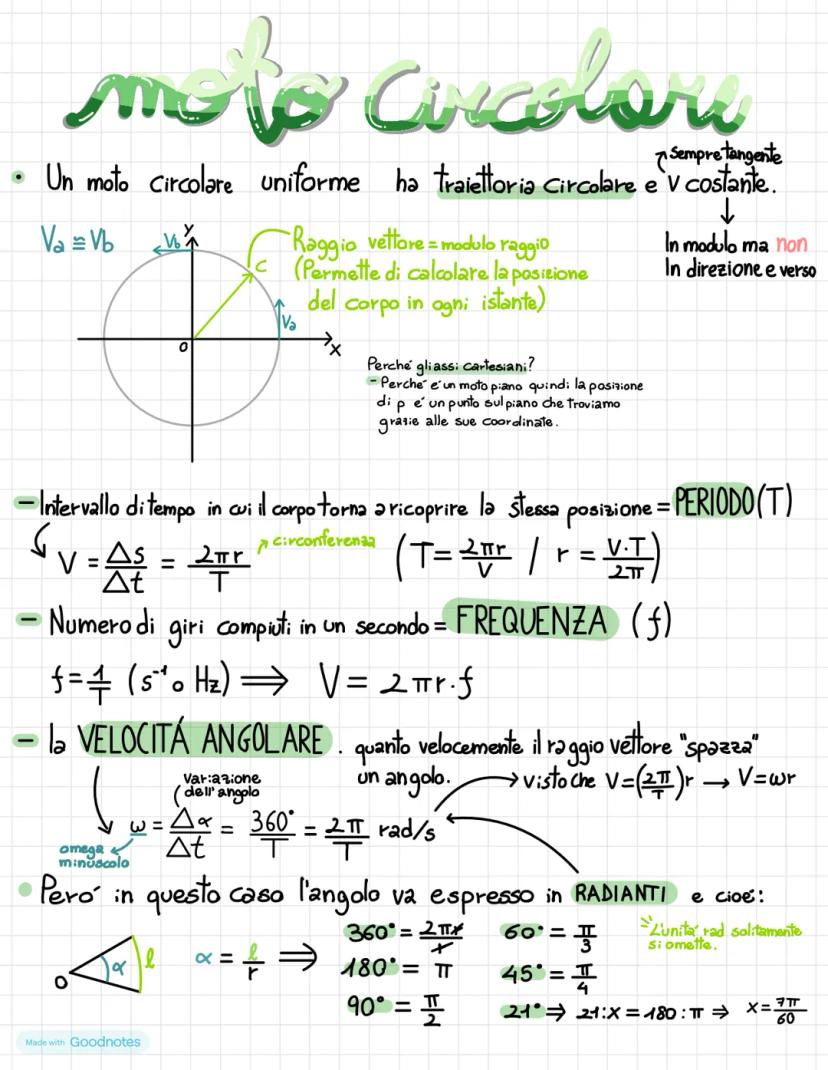 moto circolare
• Un moto circolare uniforme ha traiettoria circolare e V costante.
sempre tangente
In modulo ma non
In direzione e verso
Va ≅ Vb
Vb
y
C
Va
O
x
Raggio vettore = modulo raggio
(Permette di calcolare la posizione
del corpo in ogni istante)
Perché gli assi cartesiani?
- Perché é un moto piano quindi la posizione
di p é un punto sul piano che troviamo
grazie alle sue coordinate.
- Intervallo di tempo in cui il corpo torna a ricoprire la stessa posizione = PERIODO (T)
V = Δs/Δt = 2πr/T circonferenza (T = 2πr/V / r = V·T/2π)
- Numero di giri compiuti in un secondo = FREQUENZA (f)
f = 1/T (s⁻¹ o Hz) ⟹ V = 2πr·f
- la VELOCITÁ ANGOLARE . quanto velocemente il raggio vettore "spazza"
un angolo.
visto che V = (2π/T)r → V = ωr
Variazione
dell'angolo
ω = Δα/Δt = 360°/T = 2π/T rad/s
omega
minuscolo
• Peró in questo caso l'angolo va espresso in RADIANTI e cioé:
O α l
α = l/r ⟹
360° = 2πr/r
180° = π
90° = π/2
60° = π/3
45° = π/4
21° ⇒ 21:x = 180:π ⇒ x = 7π/60
L'unitá rad solitamente
si omette.
Made with Goodnotes